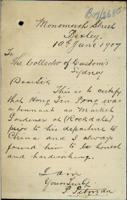 Monument Street
Bexley
10th June 1907
To
The Collector of Customs
Sydney
Dear Sir
This is to certify
that Hong Sen Fong was
known as Market
Gardener at (Rockdale)
prior to his departure to
China and I always
found him to be honest
and hardworking.
I am
Yours truly